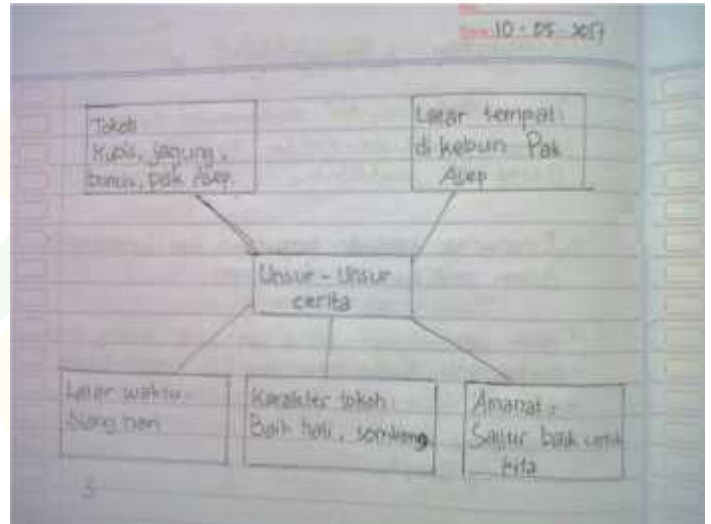 10 - 05 - 2017
Tokoh
Kubis, jagung,
buncis, pak Asep.
Latar tempat:
di kebun Pak
Asep
Unsur - Unsur
cerita
Latar waktu:
Siang hari
Karakter tokoh:
Baik hati, sombong
Amanat:
Sayur baik untuk
kita